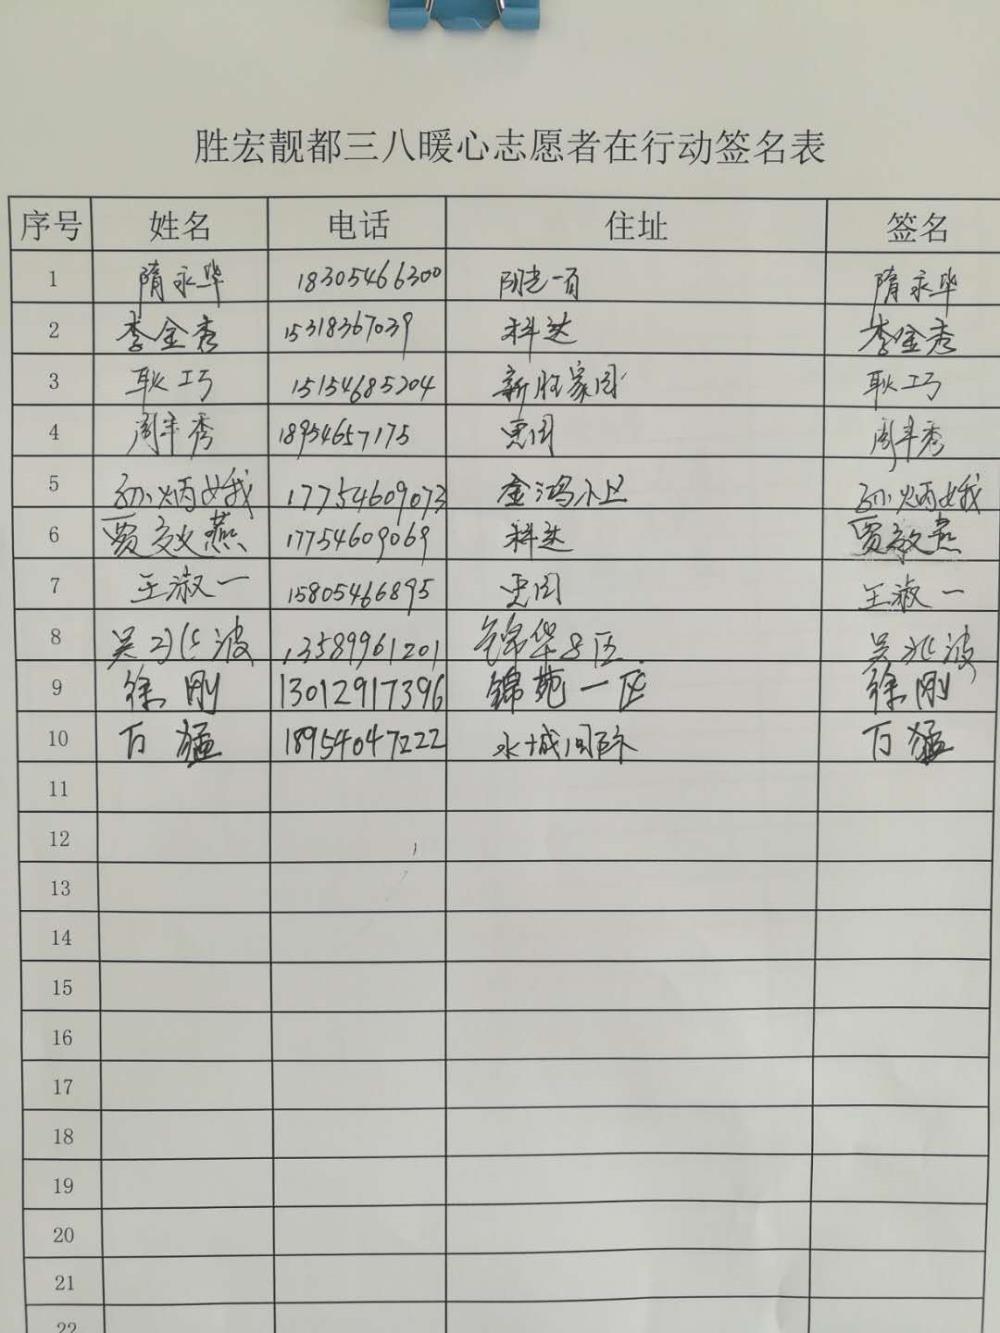 胜宏靓都三八暖心志愿者在行动签名表
序号 姓名 电话 住址 签名
1 隋永华 18305466300 阳光一百 隋永华
2 李金秀 15318367039 科达 李金秀
3 耿巧 15154685204 新旺家园 耿巧
4 周丰秀 18954657175 惠园 周丰秀
5 孙炳娥 17754609073 金鸿小区 孙炳娥
6 贾敏燕 17754609069 科达 贾敏燕
7 王淑一 15805466895 惠园 王淑一
8 吴 波 13589961201 锦华8区 吴兆波
9 徐刚 13012917396 锦苑一区 徐刚
10 万猛 18954047222 水城国际 万猛
11
12
13
14
15
16
17
18
19
20
21
22